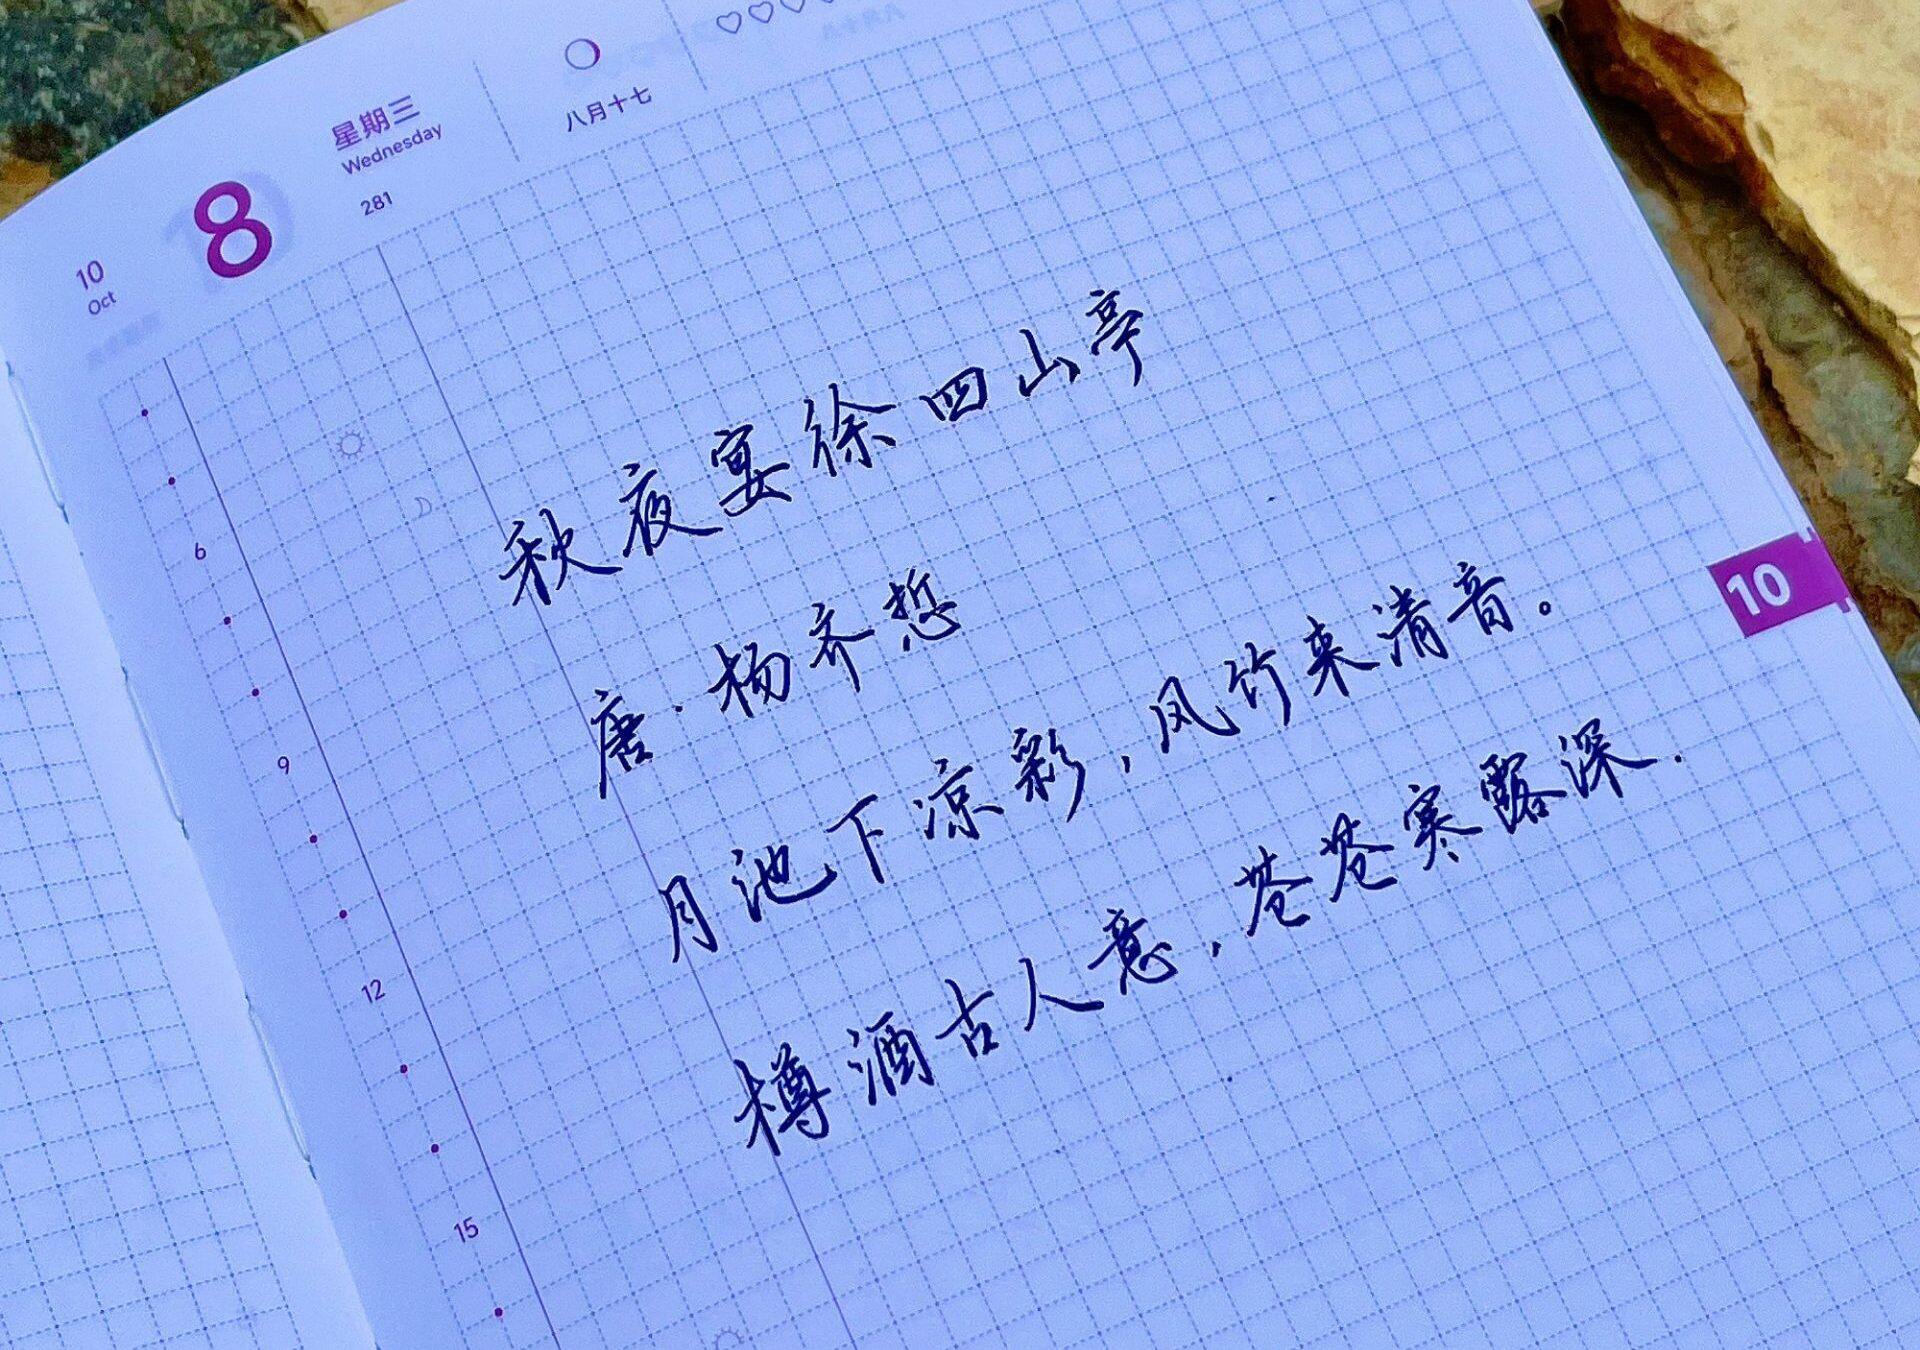 星期三
Wednesday
281
八月十七
10
Oct
8
秋夜宴徐四山亭
唐·杨齐悊
月池下凉彩，风竹来清音。
樽酒古人意，苍苍寒露深.
10
6
9
12
15